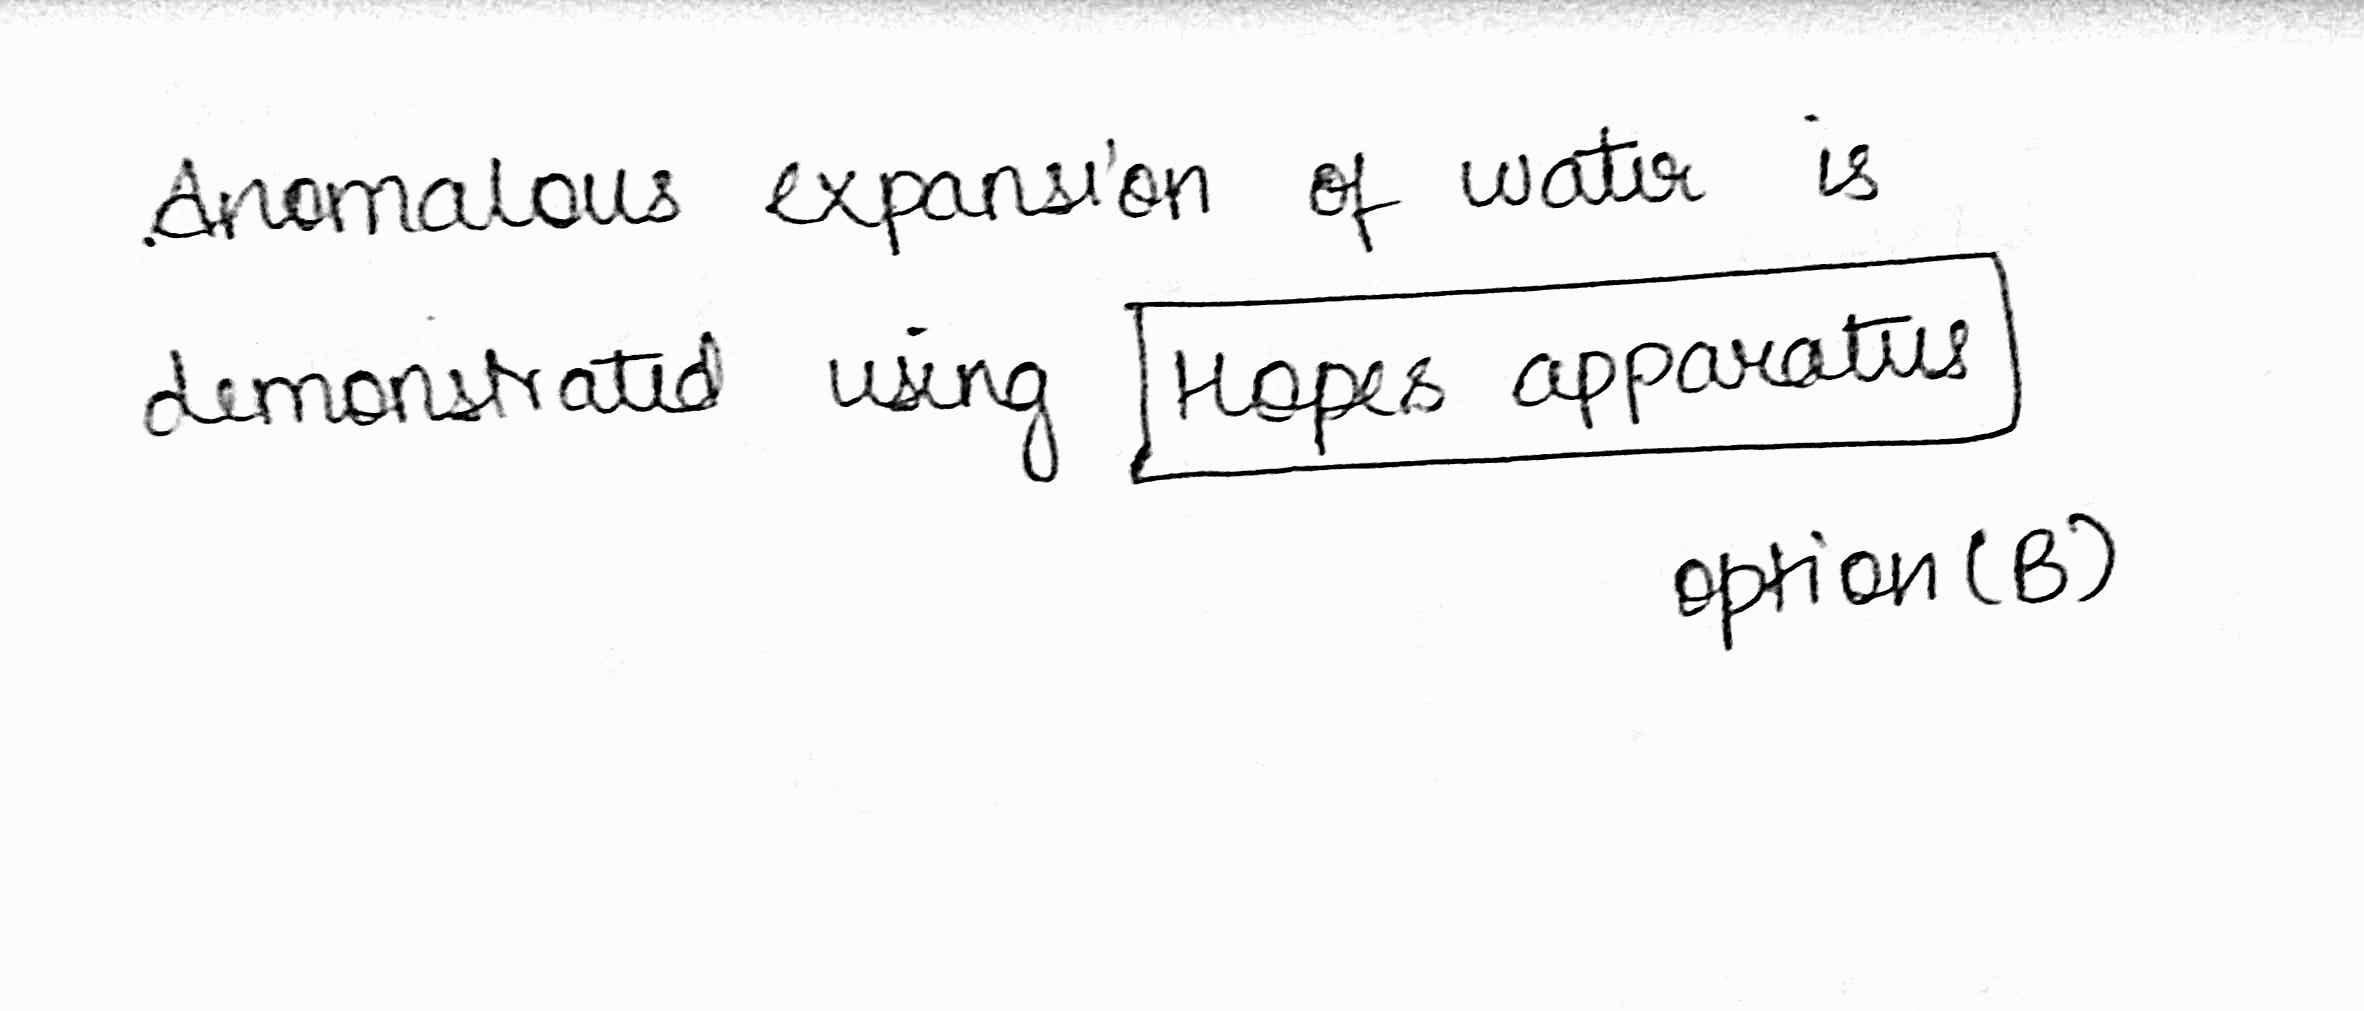 Anomalous expansion of water is
demonstrated using Hopes apparatus
option (B)